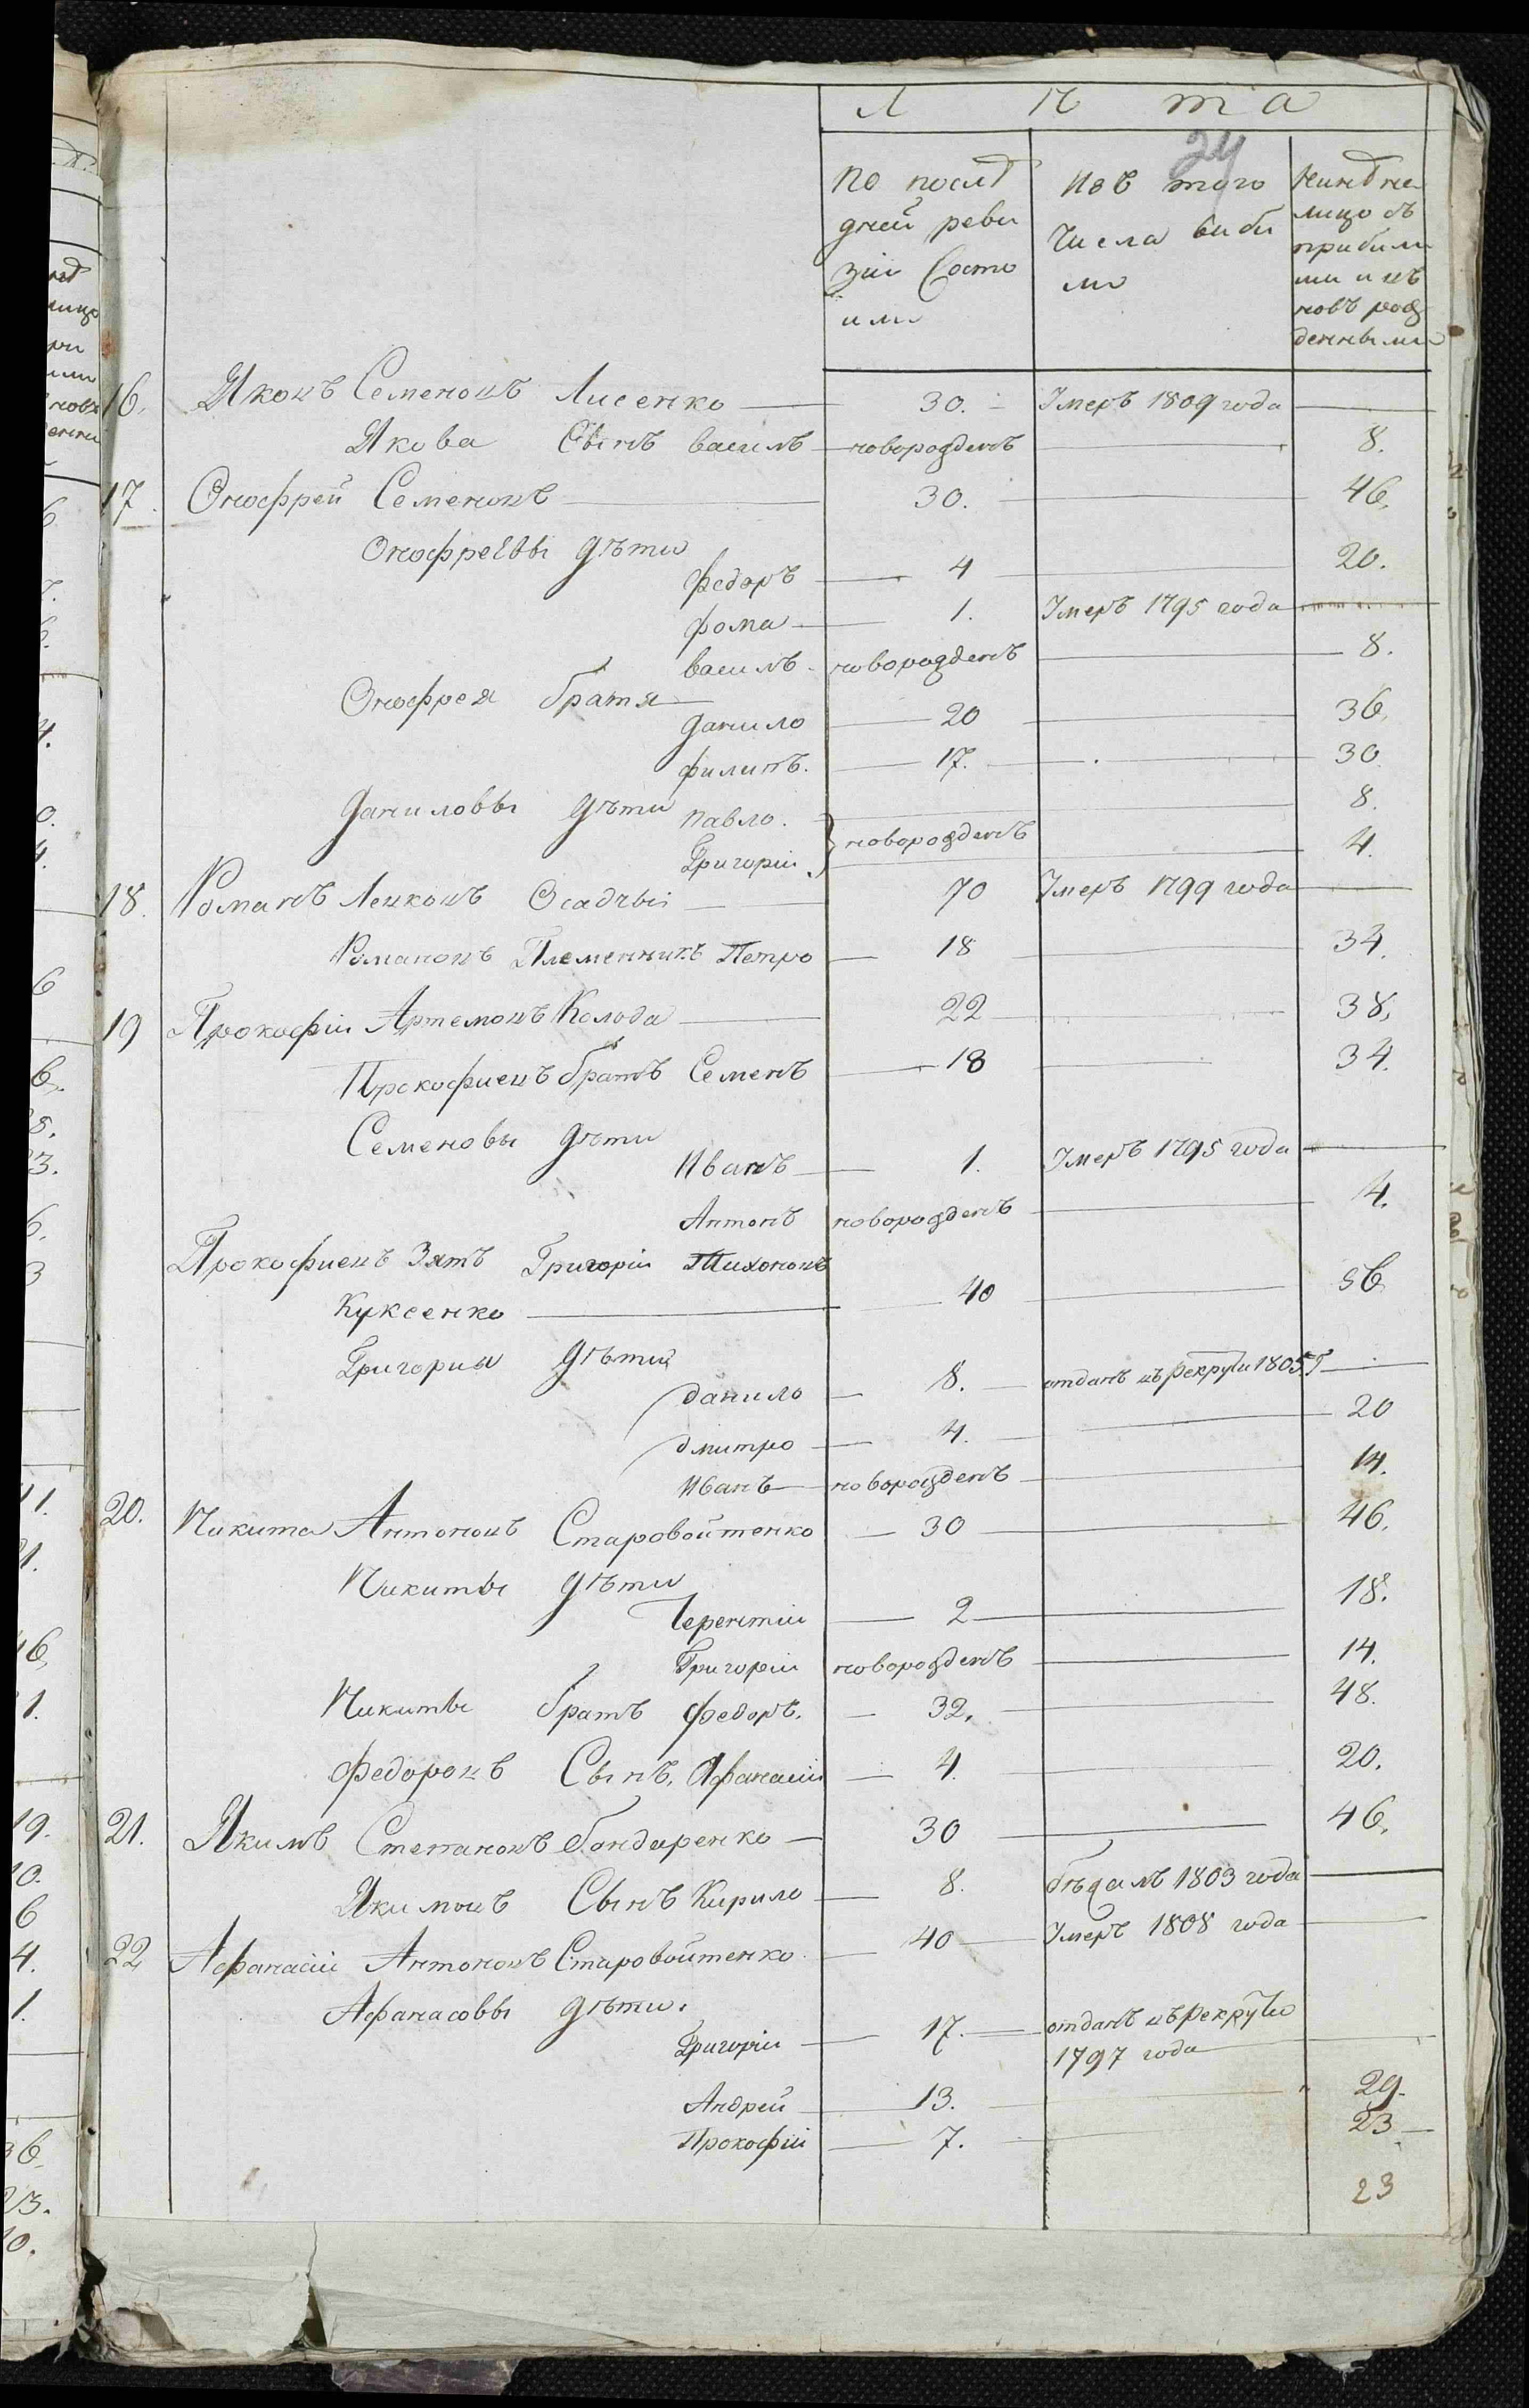 Л ѣ та
24
по послѣ
дней реви
зіи Состо
или
Изъ того
Числа выбы
ло
Нинѣ на
лицо съ
прибили
ми и въ
новъ рож
денными
16. Яковъ Семеновъ Лисенко 30. Умеръ 1809 года
Якова Сынъ василь новорожденъ 8.
17. Онофрей Семеновъ 30. 46.
Онофреевы дѣти
федоръ 4 20.
фома 1. Умеръ 1795 года
василь новорожденъ 8.
Онофрея братя
данило 20 36.
филипъ. 17. 30
даниловы дѣти павло. 8.
новорожденъ
Григорій 4.
18. Романъ Левковъ Осадчый 70 Умеръ 1799 года
Романовъ Племенникъ Петро 18 34.
19 Прокофій Артемовъ Колода 22 38.
Прокофиевъ братъ Семенъ 18 34.
Семеновы дѣти
Иванъ 1. Умеръ 1795 года
Антонъ новорожденъ 4.
Прокофиевъ Зять Григорій Тихоновъ
Куксенко 40 56
Григория дѣти
данило 8. отданъ въ рекруты 1805 г
дмитро 4. 20
Иванъ новорожденъ 14.
20. Никита Антоновъ Старовойтенко 30 46.
Никиты дѣти
Терентій 2 18.
Григорій новорожденъ 14.
Никиты братъ федоръ. 32. 48.
федоровъ Сынъ Афанасій 4. 20.
21. Якимъ Степановъ бондаренко 30 46.
Якимовъ Сынъ Кирило 8. бѣжалъ 1803 года
22 Афанасій Антоновъ Старовойтенко 40 Умеръ 1808 года
Афанасовы дѣти.
Григорій 17. отданъ въ рекруты
1797 года
Андрей 13. 29.
Прокофій 7. 23
23